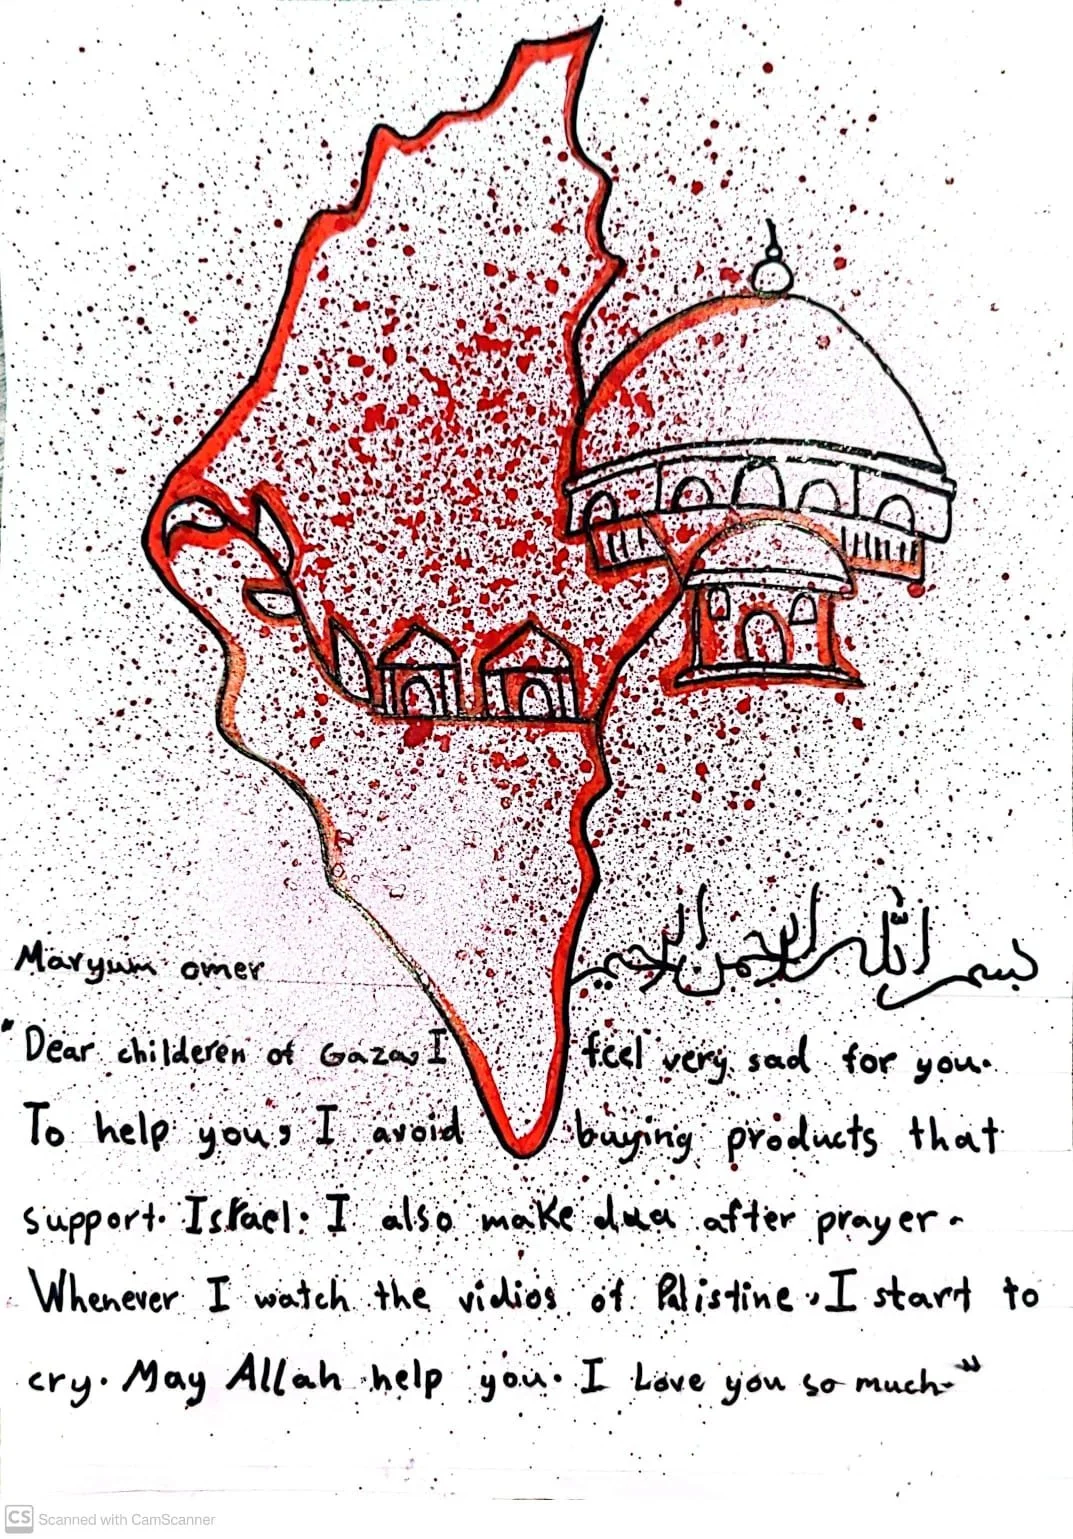 Maryum omer
بسم الله الرحمن الرحيم
"Dear childeren of Gaza, I feel very sad for you.
To help you, I avoid buying products that
support. Israel. I also make dua after prayer.
Whenever I watch the vidios of Palistine, I start to
cry. May Allah help you. I Love you so much."
CS Scanned with CamScanner